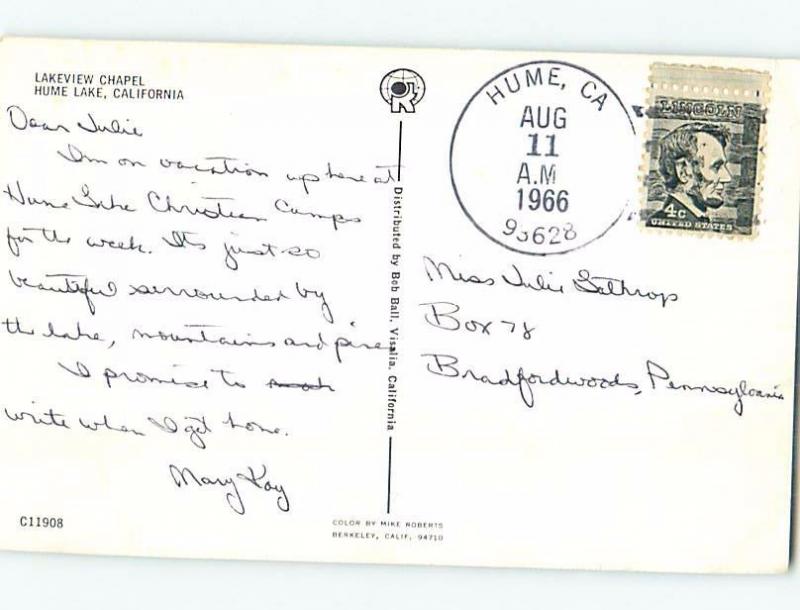 LAKEVIEW CHAPEL
HUME LAKE, CALIFORNIA
Dear Julie
I'm on vacation up here at
Hume Lake Christian Camps
for the week. It's just so
beautiful surrounded by
the lake, mountains and pine
I promise to
write when I get home.
Mary Kay
C11908
Distributed by Bob Ball, Visalia, California
COLOR BY MIKE ROBERTS
BERKELEY, CALIF. 94710
HUME, CA
AUG
11
A.M
1966
93628
LINCOLN
4c
UNITED STATES
Miss Julie Lathrop
Box 78
Bradfordwoods, Pennsylvania